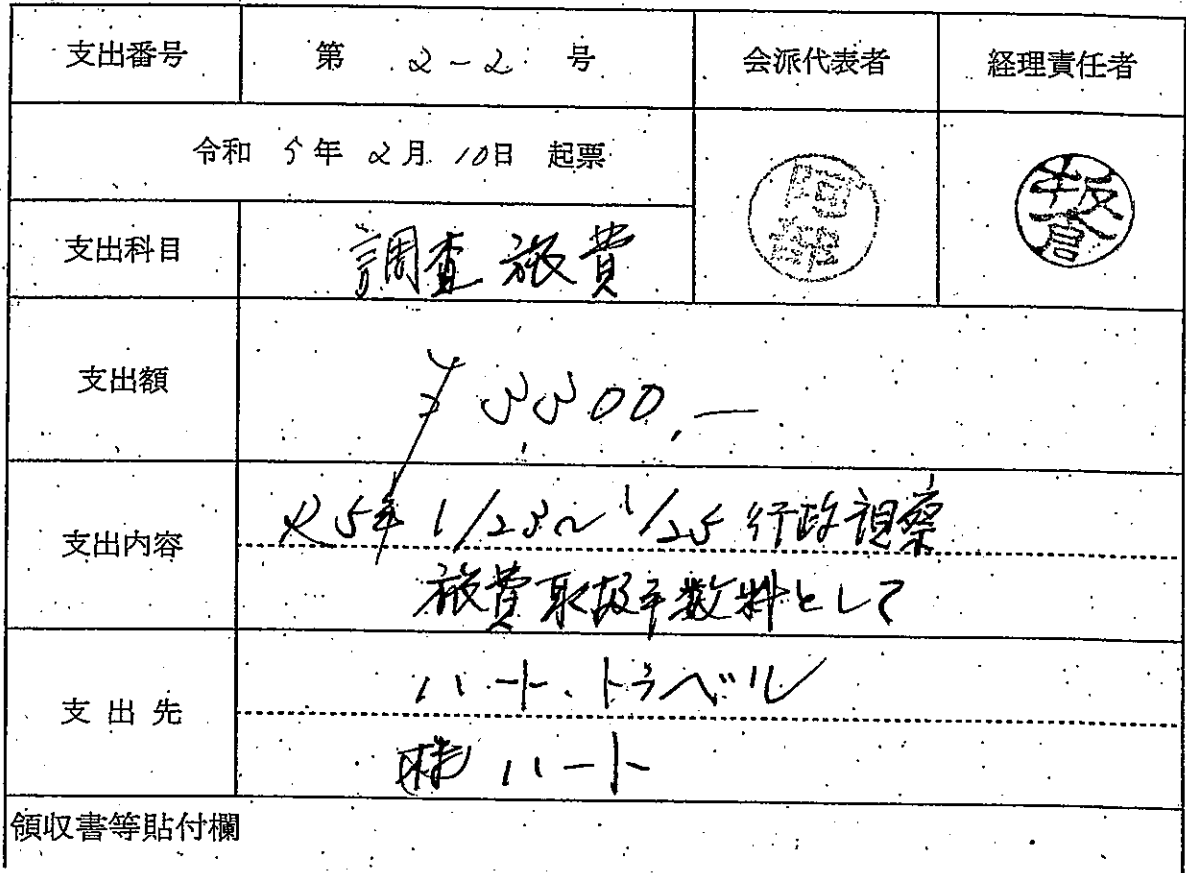 支出番号 第 2-2 号 会派代表者 経理責任者
令和 5年 2月 10日 起票
阿部
板倉
支出科目 調査旅費
支出額 ¥3300,-
支出内容 R5年 1/23~1/25 行政視察
旅費取扱手数料として
支出先 ハート・トラベル
㈱ハート
領収書等貼付欄